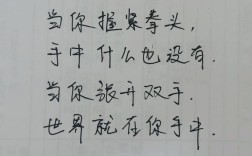 当你握紧拳头，
手中什么也没有.
当你张开双手.
世界就在你手中.